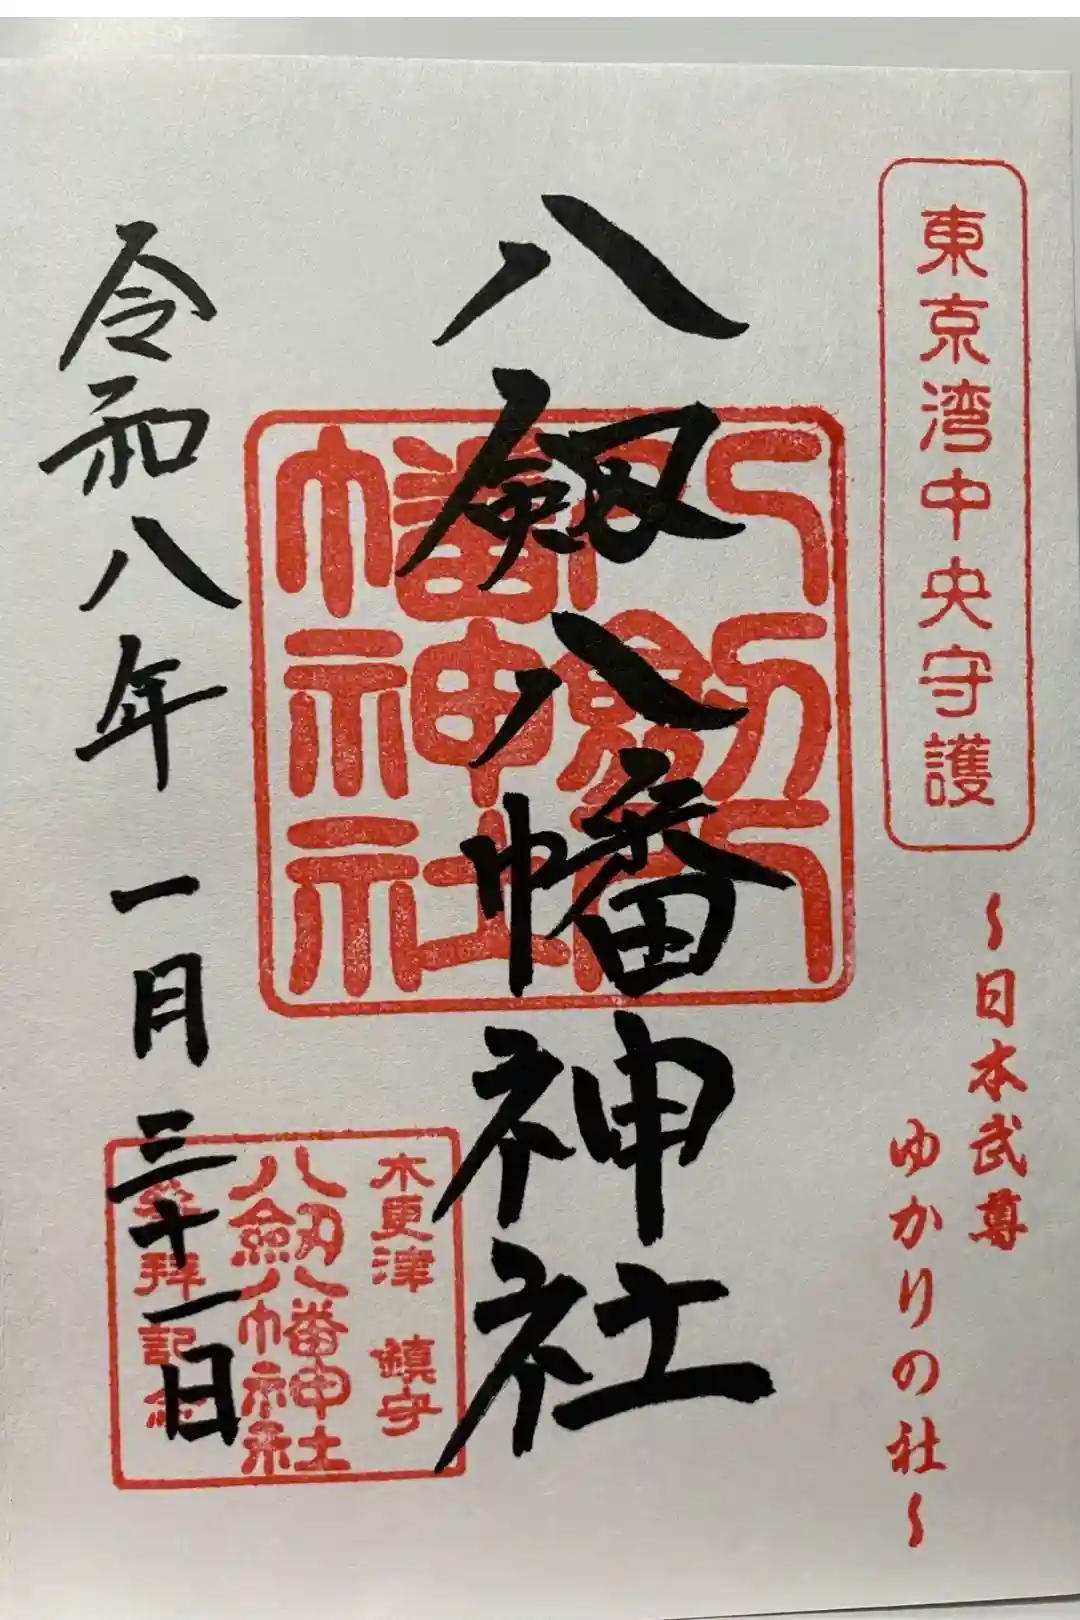 東京湾中央守護
～日本武尊
ゆかりの社～
八剱八幡神社
八剱八
幡神社
木更津 鎮守
八剱八幡神社
参拝記念
令和八年一月三十一日